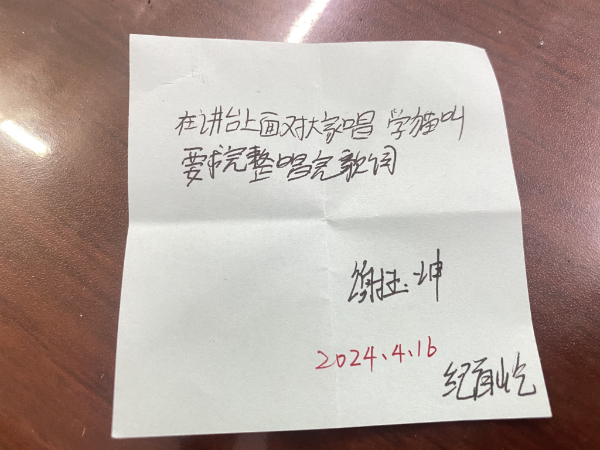 在讲台上面对大家唱 学猫叫
要求完整唱完歌词
坤
2024.4.16
纪